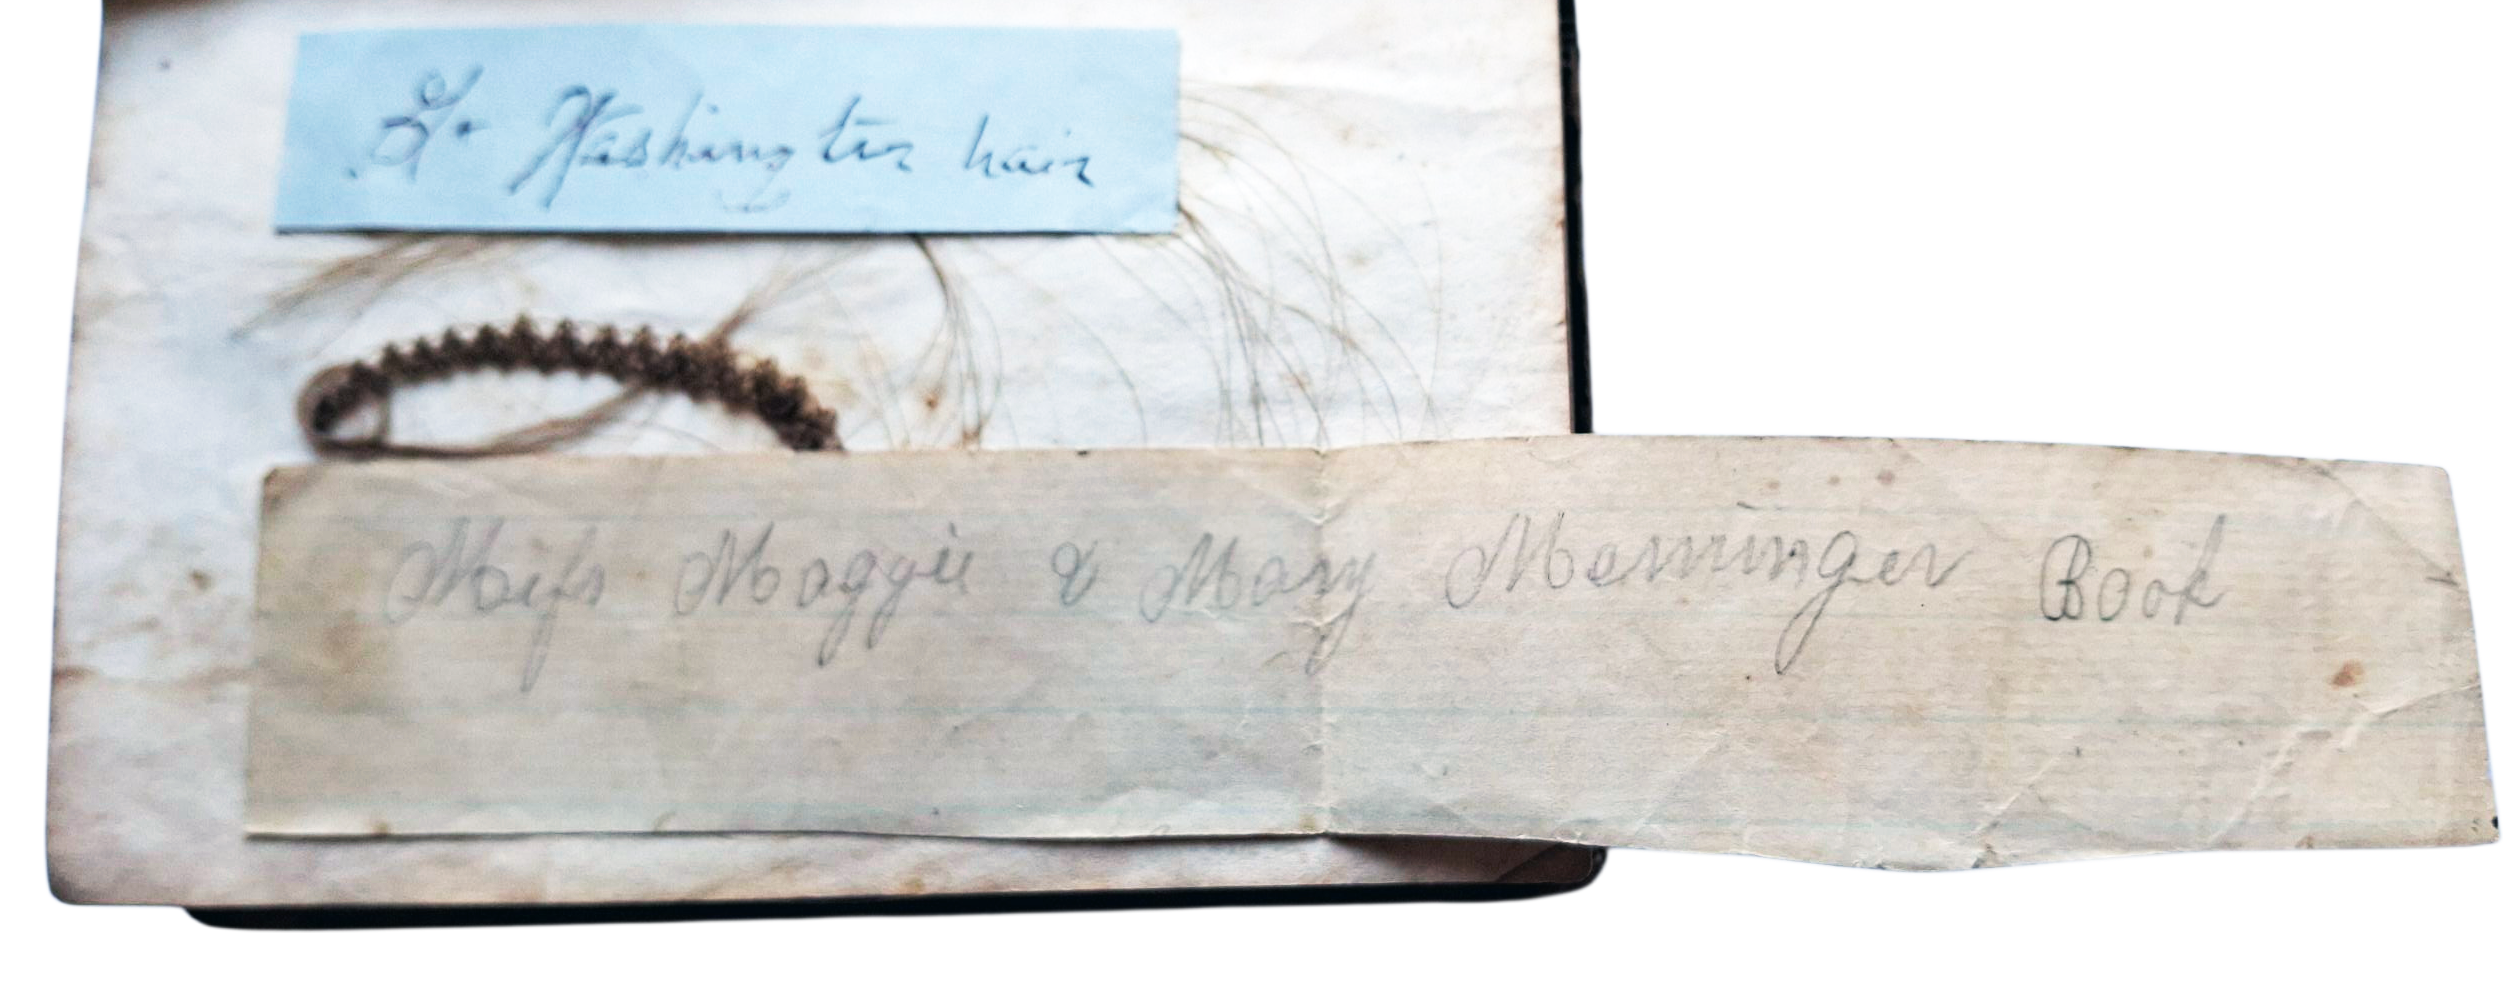 G. Washington hair
Miſs Maggie & Mary Menninger Book